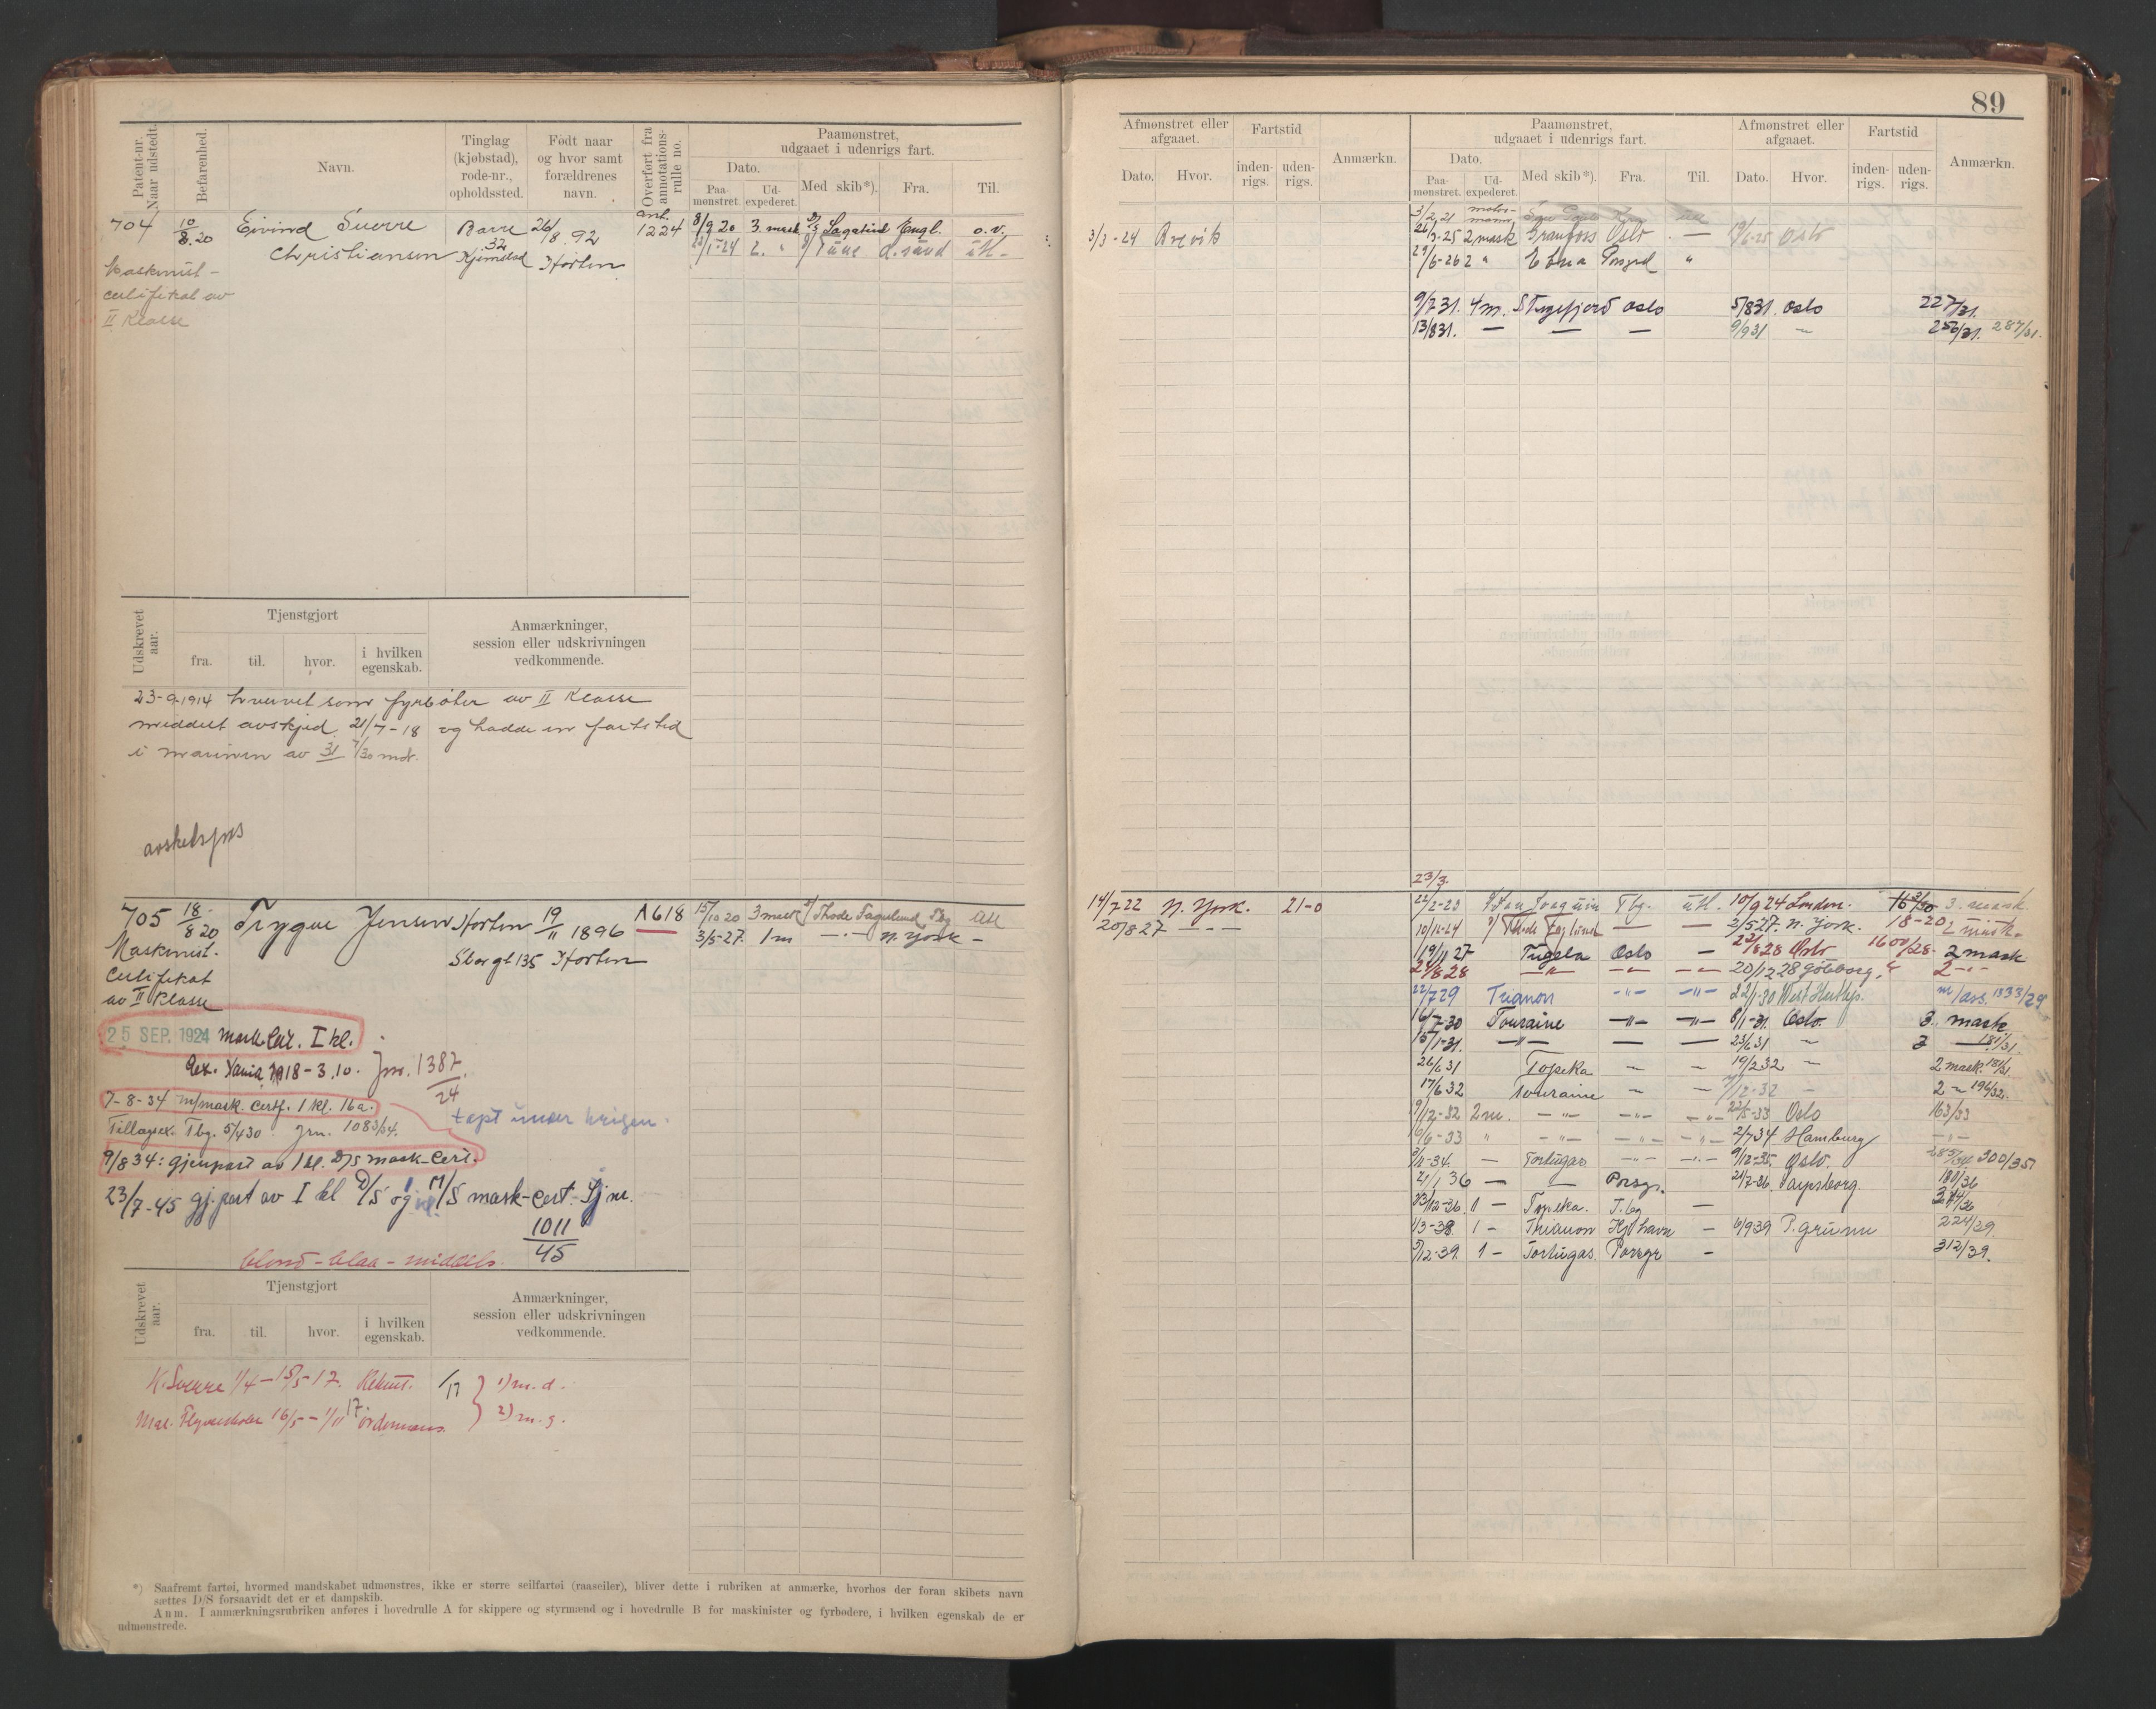 89
Patent-nr. Naar udstedt.
Befarenhed.
Navn.
Tinglag (kjøbstad), rode-nr., opholdssted.
Født naar og hvor samt forældrenes navn.
Overført fra annotations-rulle no.
Paamønstret, udgaaet i udenrigs fart.
Dato.
Paa-mønstret.
Ud-expederet.
Med skib*).
Fra.
Til.
704 10/8.20 Eivind Sverre Borre 26/8.92 ant. 1224 8/9 20 3. mask D/S Sagatind Engl. o.v.
Christiansen 32 Horten 1-24 2. " Tüne ütl-
Maskinist-
certifikat av
II Klasse
Udskrevet aar.
Tjenstgjort
fra. til. hvor. i hvilken egenskab.
Anmærkninger, session eller udskrivningen vedkommende.
23-9-1914 hvervet som fyrbøter av II Klasse
meddelt avskjed 21/7-18 og hadde en fartstid
i marinen av 31 7/30 mdr.
705 18/8 20 Trygve Jensen Horten 19/11 1896 A618 15/10 20 3 mask Thode Fagelund Tbg Utl
3/5-27. 1 m —"— N. York —
Maskinist. Storgt 135 Horten
Certifikat
av II Klasse
25 SEP. 1924 mask. Cert. I kl.
Jnr. 1387/24
7-8-34 m/mask. Certf. 1 kl. 16a.
tapt under krigen.
Tillægsex. Tbg. 5/4 30. Jrn. 1083/34.
9/8 34: gjenpart av 1 kl. D/S mask-Cert.
23/7-45 gj.part av I kl D/S og M/S mask-cert. Jnr.
1011/45
blond - blaa - middels
Udskrevet aar.
Tjenstgjort
fra. til. hvor. i hvilken egenskab.
Anmærkninger, session eller udskrivningen vedkommende.
K. Sverre 1/4 - 15/5-17. Rekrut. /17 1) m. d.
Mar. Flyveskole 16/5 - 1/11 17. ordonnans 2) m. g.
*) Saafremt fartøi, hvormed mandskabet udmønstres, ikke er større seilfartøi (raaseiler), bliver dette i rubriken at anmærke, hvorhos der foran skibets navn
sættes D/S forsaavidt det er et dampskib.
Anm. I anmærkningsrubriken anføres i hovedrulle A for skippere og styrmænd og i hovedrulle B for maskinister og fyrbødere, i hvilken egenskab de er
udmønstrede.
Afmønstret eller afgaaet.
Dato. Hvor.
Fartstid
inden-rigs. uden-rigs.
Anmærkn.
Paamønstret, udgaaet i udenrigs fart.
Dato.
Paa-mønstret. Ud-expederet. Med skib*). Fra. Til.
Afmønstret eller afgaaet.
Dato. Hvor.
Fartstid
inden-rigs. uden-rigs.
Anmærkn.
3/3-24 Brevik
3/2 21 motor-mann
26/3-25 2 mask Granfoss Oslo — 19/6-25 Oslo
29/6-26 2 " Edna Porsgrd "
9/7 31. 4 m. Oslo 5/8 31. Oslo 227/31.
13/8 31. — — — 9/9 31 — 256/31. 287/31.
23/3.
14/7 22 N. York. 21-0 22/2-23 San Joaquin Tbg. ütl. 10/9 24 London. 16 3/30 3. mask
20/8 27 —"— 10/11-24 Thode Faglund — — 2/5 27. N. York. 18-20 2 mask.
19/11 27 Tugela Oslo — 22/8 28 Oslo 1600/28. 2 mask
24/8 28 —"— —"— —"— 20/12 28 Göteborg. 2 —"—
22/7 29 Trianon —"— —"— 22/1-30 West Hartlep. m/ass. 1333/29
16/7-30 Touraine —"— —"— 8/1-31. Oslo. 3. mask
15/1-31. —"— — — 23/6 31 — 3 — 181/31.
26/6 31 Topeka — — 19/2 32 — 2 mask. 181/31
17/6 32 Touraine — — /12-32 — 2 — 196/32.
19/12-32 2 m. —"— —"— —"— 22/5-33 Oslo 163/33
/6-33 " —"— —"— —"— 2/7 34 Hamburg —"—
/11-34. — Tortugas —"— —"— 9/12-35. Oslo. 300/35
21/1 36 — — Porsgr. 21/7-36. Sarpsborg. 180/36
23/12-36 1 — Topeka. T.bg — 344/36
1/3-38 1 — Trianon Kjbhavn — 6/9 39 P. grunn 224/39.
5/12-39. 1 — Tortugas Porsgr — 312/39.